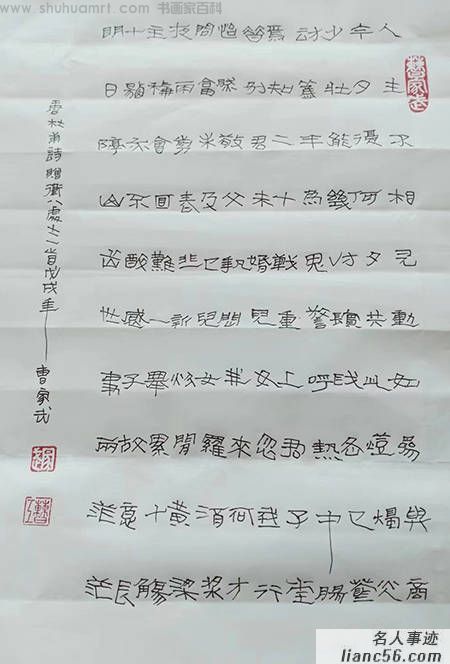 www.shuhuamrt.com 书画家百科
人生不相見動如參與商
今夕復何夕共此燈燭光
少壯能幾時鬢髮各已蒼
訪舊半為鬼驚呼熱中腸
焉知二十載重上君子堂
昔別君未婚兒女忽成行
怡然敬父執問我來何方
問答未及已兒女羅酒漿
夜雨剪春韭新炊間黃粱
主稱會面難一舉累十觴
十觴亦不酸感子故意長
明日隔山岳世事兩茫茫
彔杜甫詩贈衛八處士一首戊戌年曹家武
曹家武
名人事迹
lianc56.com